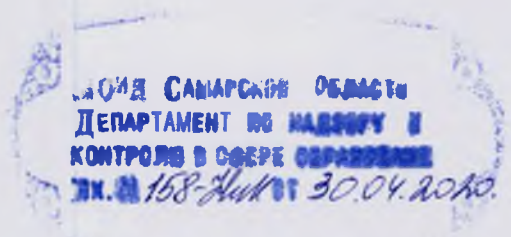 МОиН САМАРСКОЙ ОБЛАСТИ
ДЕПАРТАМЕНТ ПО НАДЗОРУ И
КОНТРОЛЮ В СФЕРЕ ОБРАЗОВАНИЯ
ВХ. № 158- ОТ 30.04.2020.